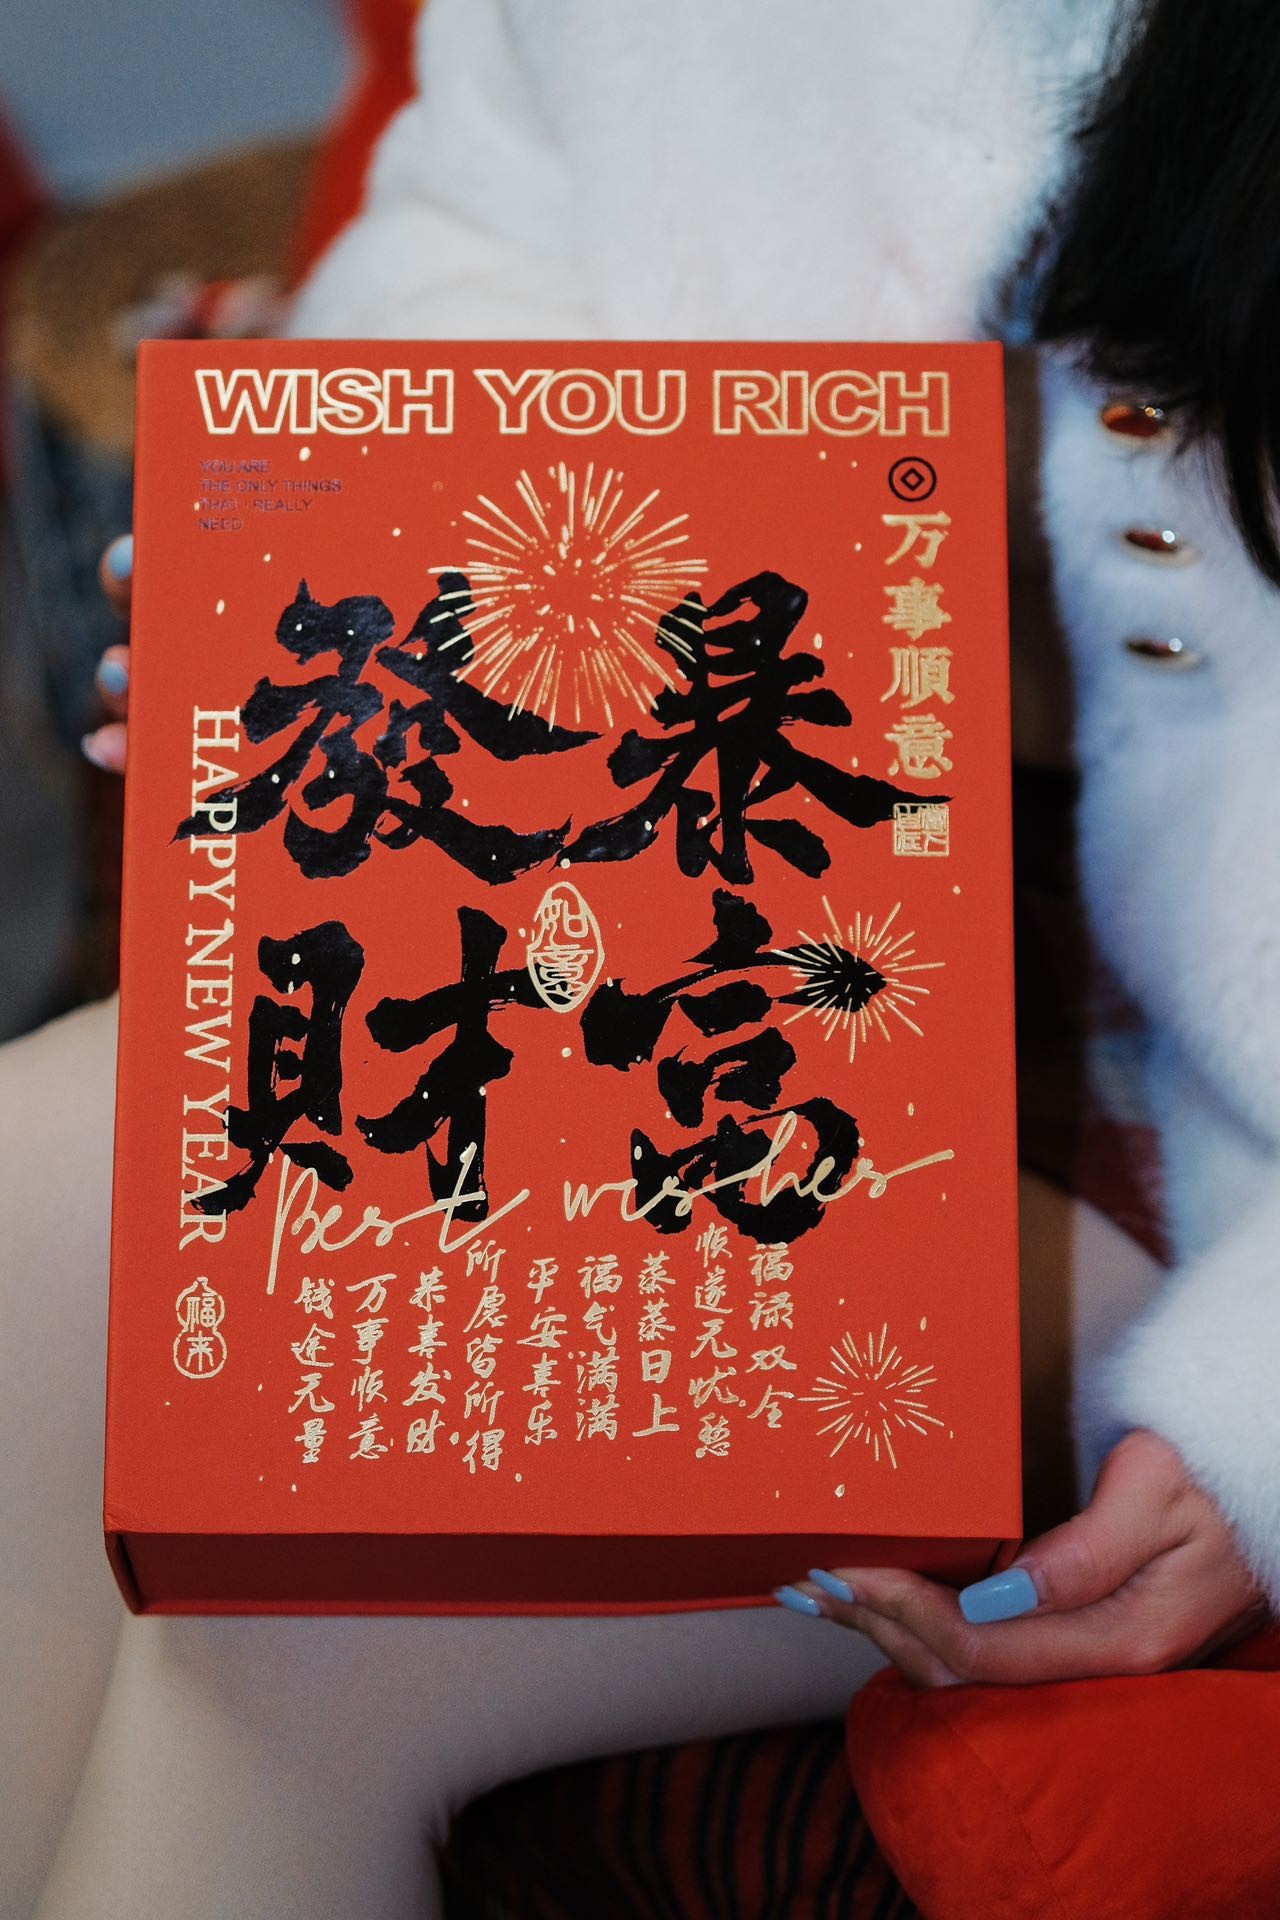 WISH YOU RICH
YOU ARE
THE ONLY THINGS
THAT I REALLY
NEED
万事順意
暴富
發財
如意
HAPPY NEW YEAR
Best wishes
福禄双全
顺遂无忧愁
蒸蒸日上
福气满满
平安喜乐
所愿皆所得
恭喜发财
万事顺意
钱途无量
福来